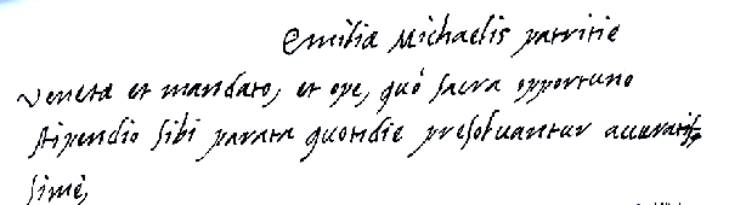 Emiliæ Michaelis patritie
Venetæ et mandato, et ope, quò sacra opportuno
stipendio sibi parata quotidie presoluantur accuratis,
simè,